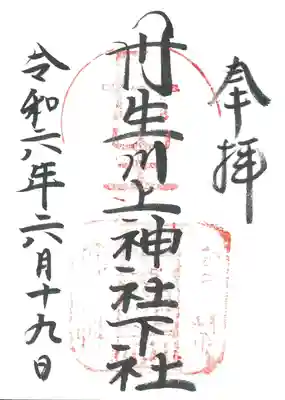 奉拝
丹生川上神社下社
令和六年六月十九日